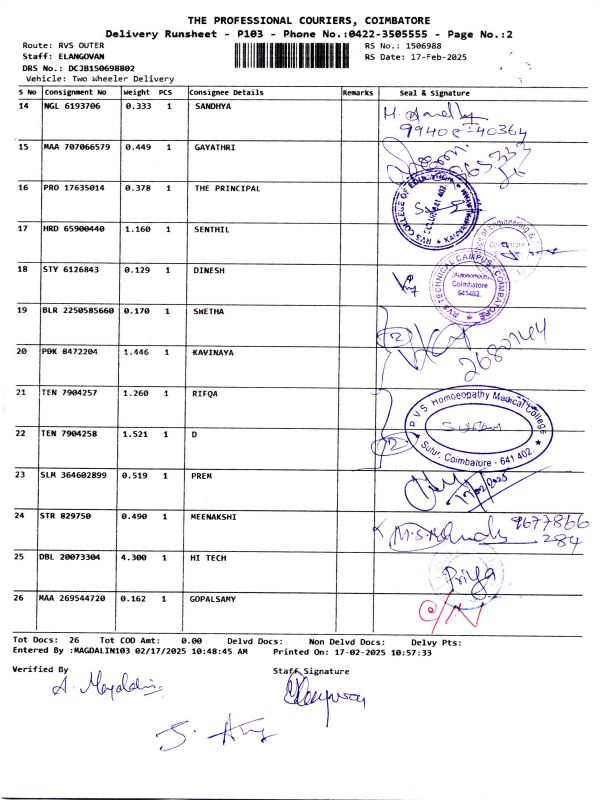 THE PROFESSIONAL COURIERS, COIMBATORE
Delivery Runsheet - P103 - Phone No.:0422-3505555 - Page No.:2
Route: RVS OUTER
RS No.: 1506988
Staff: ELANGOVAN
RS Date: 17-Feb-2025
DRS No.: DCJB150698802
Vehicle: Two Wheeler Delivery
S No Consignment No Weight PCS Consignee Details Remarks Seal & Signature
14 NGL 6193706 0.333 1 SANDHYA
99408-40364
15 MAA 707066579 0.449 1 GAYATHRI
16 PRO 17635014 0.378 1 THE PRINCIPAL
RVS COLLEGE OF EDUCATION
641 402
17 HRD 65900440 1.160 1 SENTHIL
18 STY 6126843 0.129 1 DINESH
RVS TECHNICAL CAMPUS - COIMBATORE
(Autonomous)
Coimbatore
641402.
19 BLR 2250585660 0.170 1 SWETHA
20 PDK 8472204 1.446 1 KAVINAYA
21 TEN 7904257 1.260 1 RIFQA
R.V.S. Homoeopathy Medical College
Sulur, Coimbatore - 641 402.
22 TEN 7904258 1.521 1 D
23 SLM 364602899 0.519 1 PREM
17/02/2025
24 STR 829750 0.490 1 MEENAKSHI
9677866
284
25 DBL 20073304 4.300 1 HI TECH
Priya
26 MAA 269544720 0.162 1 GOPALSAMY
Tot Docs: 26 Tot COD Amt: 0.00 Delvd Docs: Non Delvd Docs: Delvy Pts:
Entered By :MAGDALIN103 02/17/2025 10:48:45 AM Printed On: 17-02-2025 10:57:33
Verified By
Staff Signature